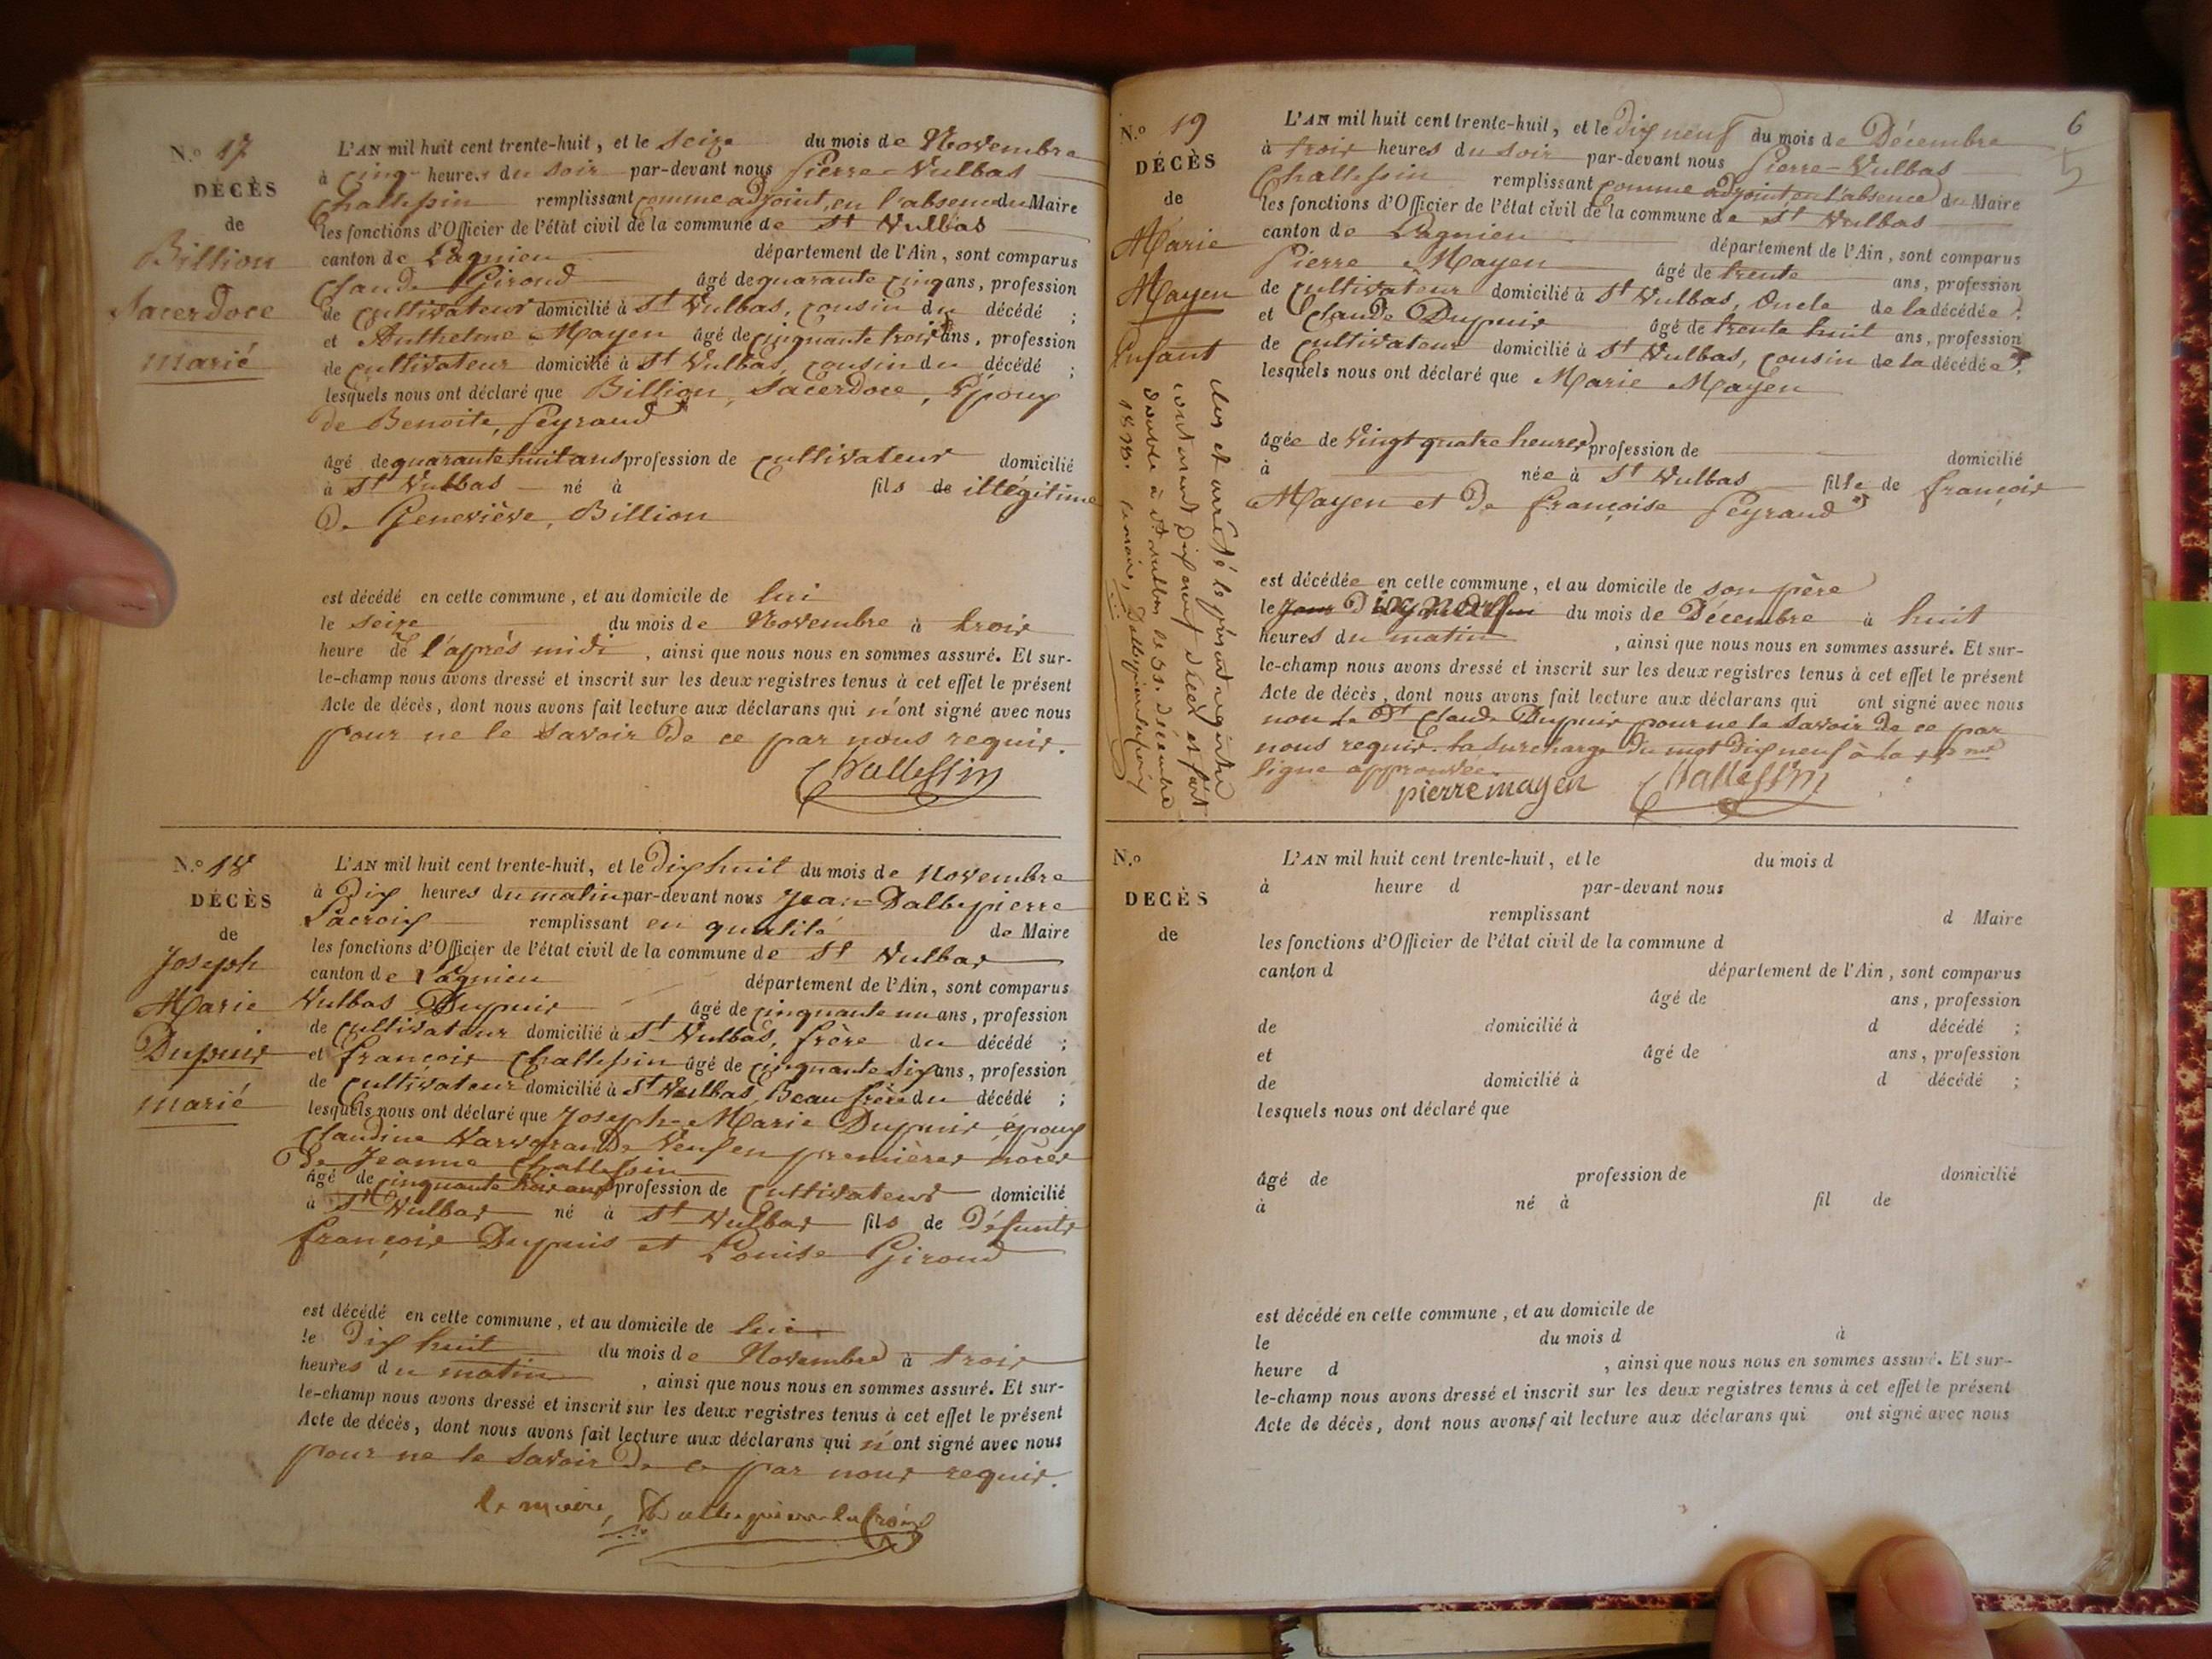 N.º 17
DÉCÈS
de
Billion
Sacerdoce
marié
L'AN mil huit cent trente-huit, et le seize du mois de Novembre
à cinq heures du soir par-devant nous Pierre-Vulbas
Challessin remplissant comme adjoint, en l'absence du Maire
les fonctions d'Officier de l'état civil de la commune de St Vulbas
canton de Lagnieu département de l'Ain, sont comparus
Claude Giroud âgé de quarante cinq ans, profession
de cultivateur domicilié à St Vulbas, cousin du décédé ;
et Anthelme Mayen âgé de cinquante trois ans, profession
de cultivateur domicilié à St Vulbas, cousin du décédé ;
lesquels nous ont déclaré que Billion, Sacerdoce, Époux
de Benoite, Peyraud
âgé de quarante huit ans profession de cultivateur domicilié
à St Vulbas né à fils de illégitime
De Geneviève, Billion
est décédé en cette commune, et au domicile de lui
le seize du mois de Novembre à trois
heure de l'après midi, ainsi que nous nous en sommes assuré. Et sur-
le-champ nous avons dressé et inscrit sur les deux registres tenus à cet effet le présent
Acte de décès, dont nous avons fait lecture aux déclarans qui n'ont signé avec nous
pour ne le savoir De ce par nous requis.
Challessin
N.º 18
DÉCÈS
de
Joseph
Marie
Dupuis
marié
L'AN mil huit cent trente-huit, et le Dix huit du mois de Novembre
à Dix heures du matin par-devant nous Jean Dallepierre
Lacroix remplissant en qualité de Maire
les fonctions d'Officier de l'état civil de la commune de St Vulbas
canton de Lagnieu département de l'Ain, sont comparus
Vulbas Dupuis âgé de cinquante un ans, profession
de cultivateur domicilié à St Vulbas, frère du décédé ;
et François Challessin âgé de cinquante Six ans, profession
de cultivateur domicilié à St Vulbas, Beau frère du décédé ;
lesquels nous ont déclaré que Joseph-Marie Dupuis époux
Claudine Veuf en premières nôces
De Jeanne Challessin
âgé de cinquante trois ans profession de cultivateur domicilié
à St Vulbas né à St Vulbas fils de Défunts
François Dupuis et Louise Giroud
est décédé en cette commune, et au domicile de lui
le Dix huit du mois de Novembre à trois
heures du matin, ainsi que nous nous en sommes assuré. Et sur-
le-champ nous avons dressé et inscrit sur les deux registres tenus à cet effet le présent
Acte de décès, dont nous avons fait lecture aux déclarans qui n'ont signé avec nous
pour ne le savoir De ce par nous requis.
le maire, Dallepierre lacroix
6
5
N.º 19
DÉCÈS
de
Marie
Mayen
Enfant
L'AN mil huit cent trente-huit, et le Dix neuf du mois de Décembre
à trois heures du soir par-devant nous Pierre-Vulbas
Challessin remplissant comme adjoint, en l'absence du Maire
les fonctions d'Officier de l'état civil de la commune de St Vulbas
canton de Lagnieu département de l'Ain, sont comparus
Pierre Mayen âgé de trente ans, profession
de cultivateur domicilié à St Vulbas, Oncle de la décédée ;
et Claude Dupuis âgé de trente huit ans, profession
de cultivateur domicilié à St Vulbas, cousin de la décédée ;
lesquels nous ont déclaré que Marie Mayen
âgée de vingt quatre heures profession de domicilié
à née à St Vulbas fille de François
Mayen et De Françoise Peyraud
est décédée en cette commune, et au domicile de son père
le Dix neuf du mois de Décembre à huit
heures du matin, ainsi que nous nous en sommes assuré. Et sur-
le-champ nous avons dressé et inscrit sur les deux registres tenus à cet effet le présent
Acte de décès, dont nous avons fait lecture aux déclarans qui ont signé avec nous
non le Dt Claude Dupuis pour ne le savoir de ce par
nous requis. la surcharge du mot Dix neuf à la
ligne approuvée.
pierre mayen Challessin
Clos et arrêté le présent registre
contenant Dix neuf décès et fait
double à St Vulbas le 31 décembre
1838. le maire, Dallepierre lacroix
N.º
DECÈS
de
L'AN mil huit cent trente-huit, et le du mois d
à heure d par-devant nous
remplissant d Maire
les fonctions d'Officier de l'état civil de la commune d
canton d département de l'Ain, sont comparus
âgé de ans, profession
de domicilié à d décédé ;
et âgé de ans, profession
de domicilié à d décédé ;
lesquels nous ont déclaré que
âgé de profession de domicilié
à né à fil de
est décédé en cette commune, et au domicile de
le du mois d à
heure d , ainsi que nous nous en sommes assuré. Et sur-
le-champ nous avons dressé et inscrit sur les deux registres tenus à cet effet le présent
Acte de décès, dont nous avons fait lecture aux déclarans qui ont signé avec nous